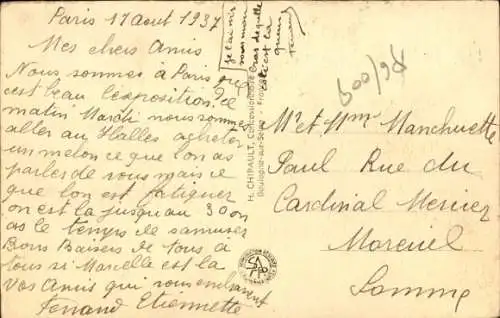 Paris 17 Aout 1937
Mes chers Amis
Nous sommes à Paris
c'est beau l'exposition. Ce
matin Mardi nous somme
aller au Halles acheter
un melon ce que lon as
parler de vous mais ce
que lon est fatiguer
on est la jusquau 30 on
as le temps de samuser
Bons Baisers de tous à
tous si Marcelle est la
Vos Amis qui vous embrassent
Fernand Etiennette
H. CHIPAULT, Concessionnaire
Boulogne-sur-Seine
500/98
Mr et Mme Manchuette
Paul Rue du
Cardinal Mercier
Moreuil
Somme